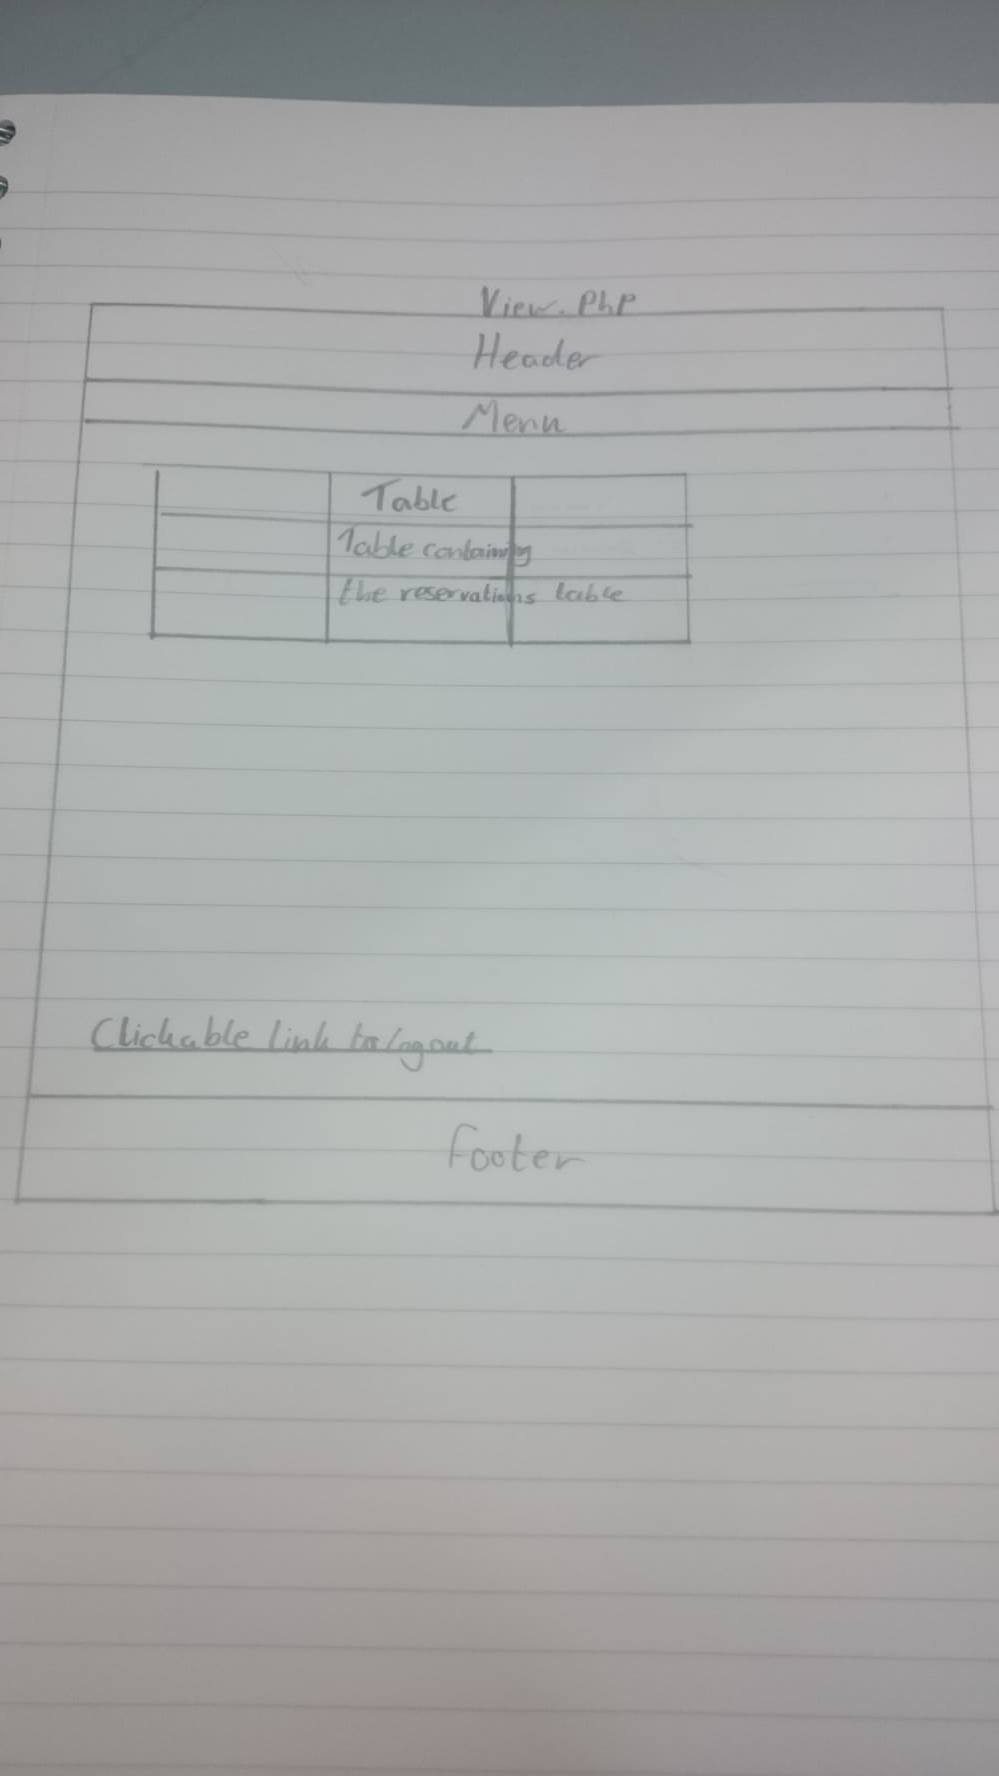 View.PhP
Header
Menu
Table
Table containing
the reservations table
Clickable link to logout
Footer